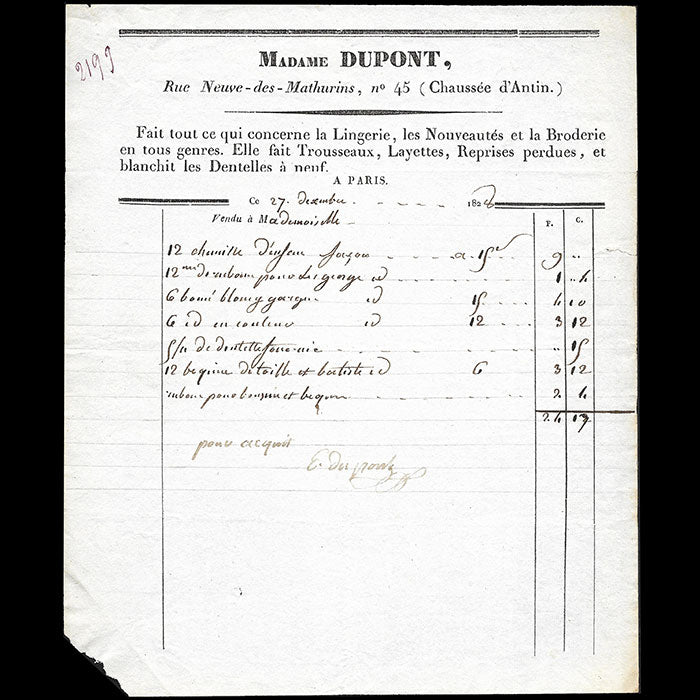 2199
MADAME DUPONT,
Rue Neuve-des-Mathurins, nº 45 (Chaussée d'Antin.)
Fait tout ce qui concerne la Lingerie, les Nouveautés et la Broderie
en tous genres. Elle fait Trousseaux, Layettes, Reprises perdues, et
blanchit les Dentelles à neuf.
A PARIS.
Ce 27. dexembre 1828
Vendu à Mademoiselle
F. C.
12 chemise d'enfan façon a 15 9 ..
12 de ruban pour les gorge id 1 .. 4
6 bonné blomg garque id 15 4 10
6 id en couleur id 12 3 12
5/4 de dentelle .. 15
12 beguine de toille et batiste id 6 3 12
ruban pour bonnn et beguin 2 4
24 17
pour acquit
E. Dupont